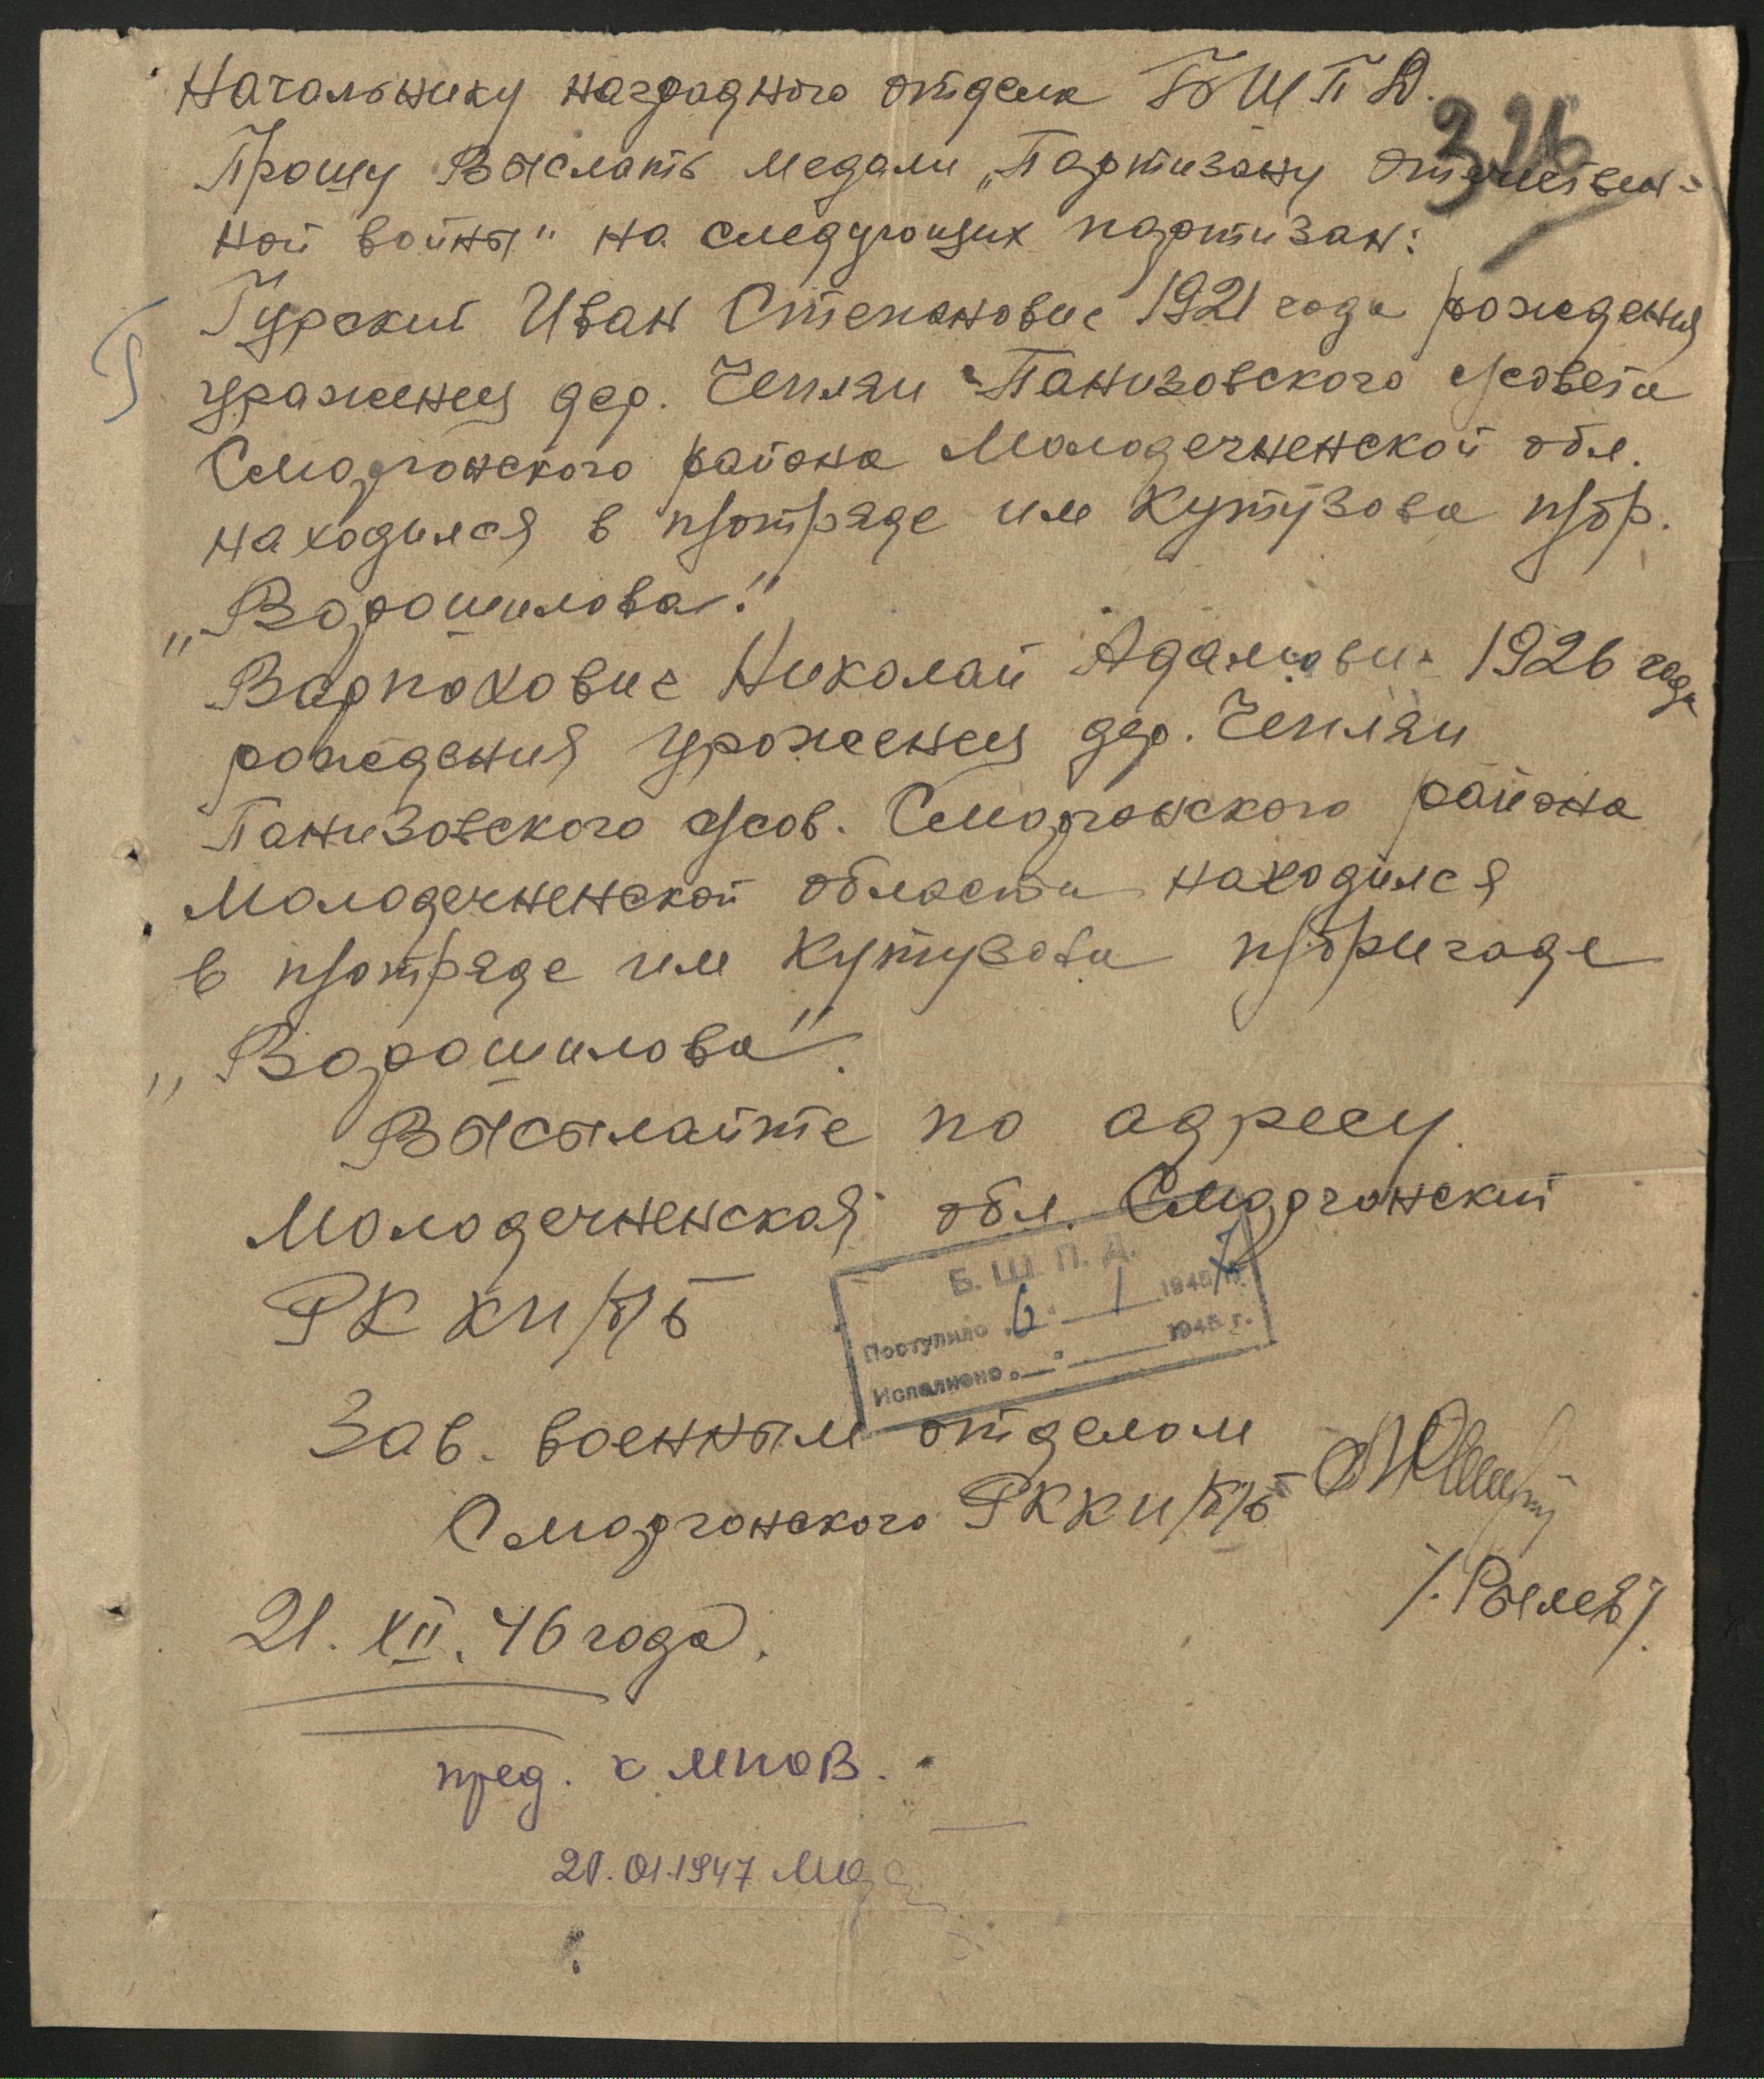 Начальнику наградного отдела БШПД.
326
Прошу выслать медали „Партизану Отечествен-
ной войны" на следующих партизан:
Гурский Иван Степанович 1921 года рождения
Г
уроженец дер. Чехи Панизовского с/совета
Сморгонского района Молодечненской обл.
находился в п/отряде им Кутузова п/бр.
„Ворошилова".
Варпахович Николай Адамович 1926 года
рождения уроженец дер.
Панизовского с/сов. Сморгонского района
Молодечненской области находился
в п/отряде им Кутузова п/бригаде
„Ворошилова".
Высылайте по адресу.
Молодечненская обл. Сморгонский
РК КП/б/Б
Б. Ш. П. Д.
Поступило 6. 1 1946 7 г.
Исполнено 1946 г.
Зав. военным отделом
Сморгонского РК КП/б/Б
/. Рылев /.
21. XII. 46 года.
пред.
21.01.1947